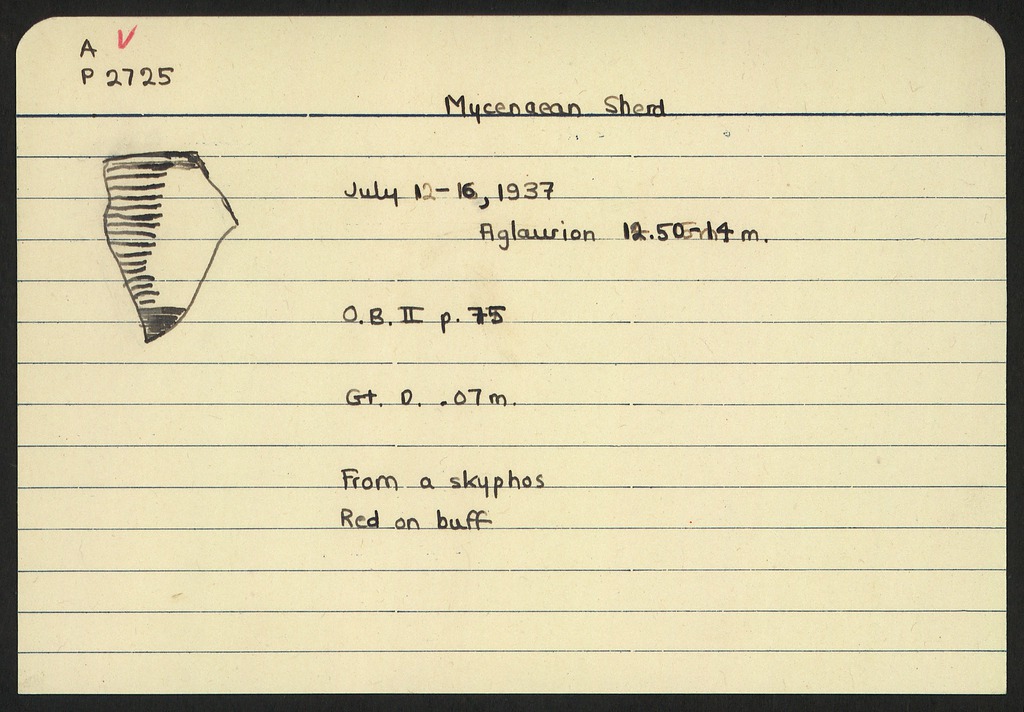 A V
P 2725
Mycenaean Sherd
July 12-16, 1937
Aglaurion 12.50-14 m.
O.B. II p. 75
Gt. D. .07 m.
From a skyphos
Red on buff